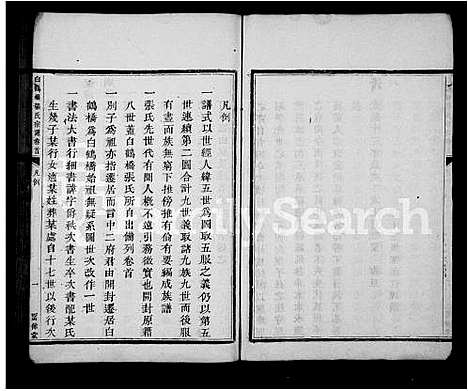 凡例
一譜式以世經人緯五世爲圖取五服之義仍以第五
世連續第二圖合計九世義取諸九族九世而後服
有盡而族無窮下推倣此有倫有要編成族譜
一張氏先世代有聞人概不遠引務徵實也開封原籍
八世蓋白鶴橋張氏所自出備列卷首
一別子爲祖亦指遷居而言中二府君由開封遷居白
鶴橋爲白鶴橋始祖無疑系圖世次改作一世
一書法大書行細書諱字爵秩次書生卒次書配某氏
生幾子某行女適某姓葬某處自十七世以後行次
白鶴橋張氏宗譜卷首
凡例
一
FamilySearch